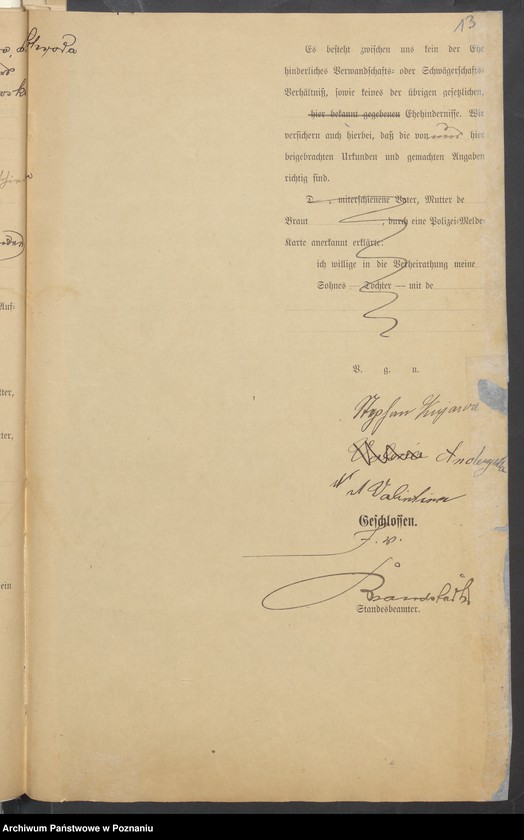 13
Es besteht zwischen uns kein der Ehe
hinderliches Verwandschafts- oder Schwägerschafts-
Verhältniß, sowie keines der übrigen gesetzlichen,
hier bekannt gegebenen Ehehindernisse. Wir
versichern auch hierbei, daß die von uns hier
beigebrachten Urkunden und gemachten Angaben
richtig sind.
D , miterschienene Vater, Mutter de
Braut , durch eine Polizei-Melde-
Karte anerkannt erklärte:
ich willige in die Verheirathung meine
Sohnes — Tochter — mit de
V. g. u.
Stephan Kujawa
Valentina
Geschlossen.
F. v.
Standesbeamter.
Auf-
tter,
ter,
ein
Archiwum Państwowe w Poznaniu